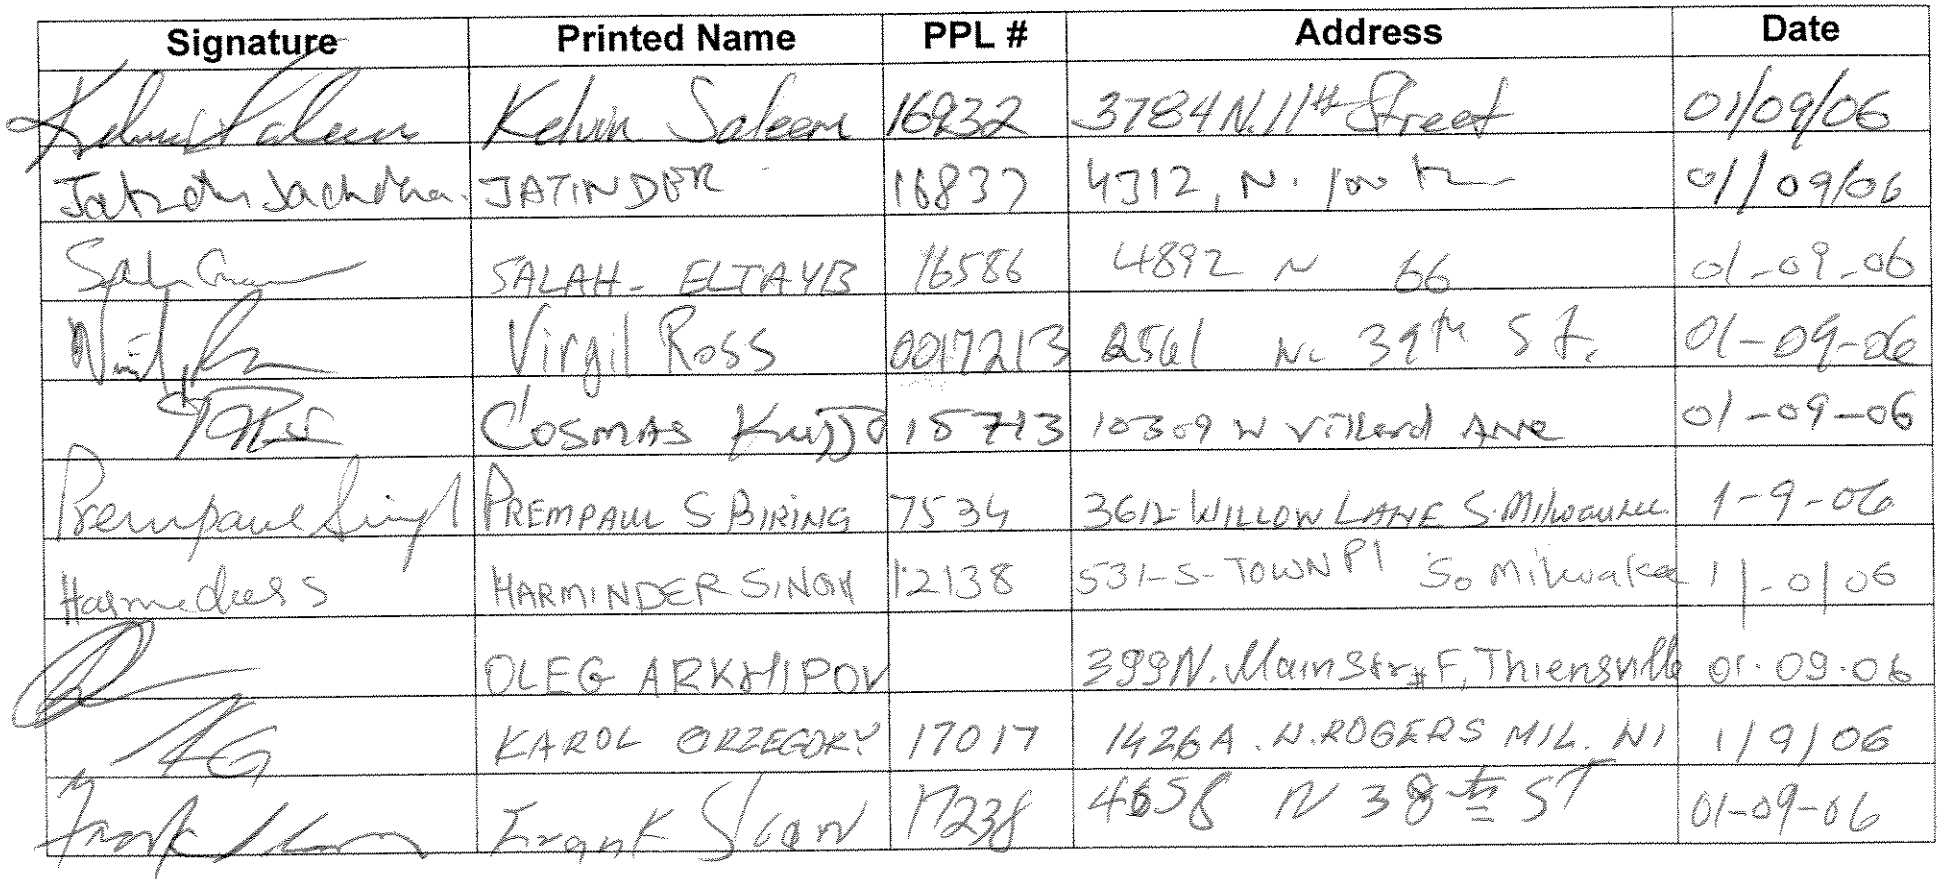 Signature Printed Name PPL # Address Date
Kelvin Saleem Kelvin Saleem 16932 3784 N. 11th Street 01/09/06
JATINDER 16837 4312, N. 100 th 01/09/06
SALAH- ELTAYB 16586 4892 N 66 01-09-06
Virgil Ross 0017213 2561 N. 39th St. 01-09-06
COSMAS 15713 10309 W Villard Ave 01-09-06
Prempaul Singh PREMPAUL S BIRING 7534 3612-WILLOW LANE S. Milwaukee 1-9-06
HARMINDER SINGH 12138 531-S-TOWN Pl So Milwakee
OLEG ARKHIPOV 399 N. Main Str, #F, Thiensville 01.09.06
KG KAROL GRZEGORY 17017 1426A. N. ROGERS MIL. WI 1/9/06
Frank Sloan Frank Sloan 17238 4658 N 38 th ST 01-09-06